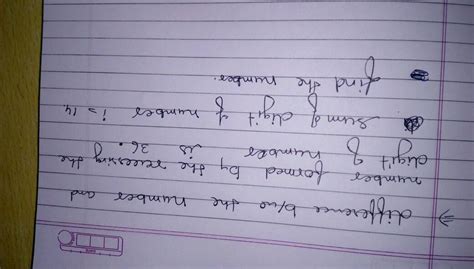 ⇒ difference b/w the number and
number formed by the reversing the
digit of number is 36.
Sum of digit of number i = 14
find the number.